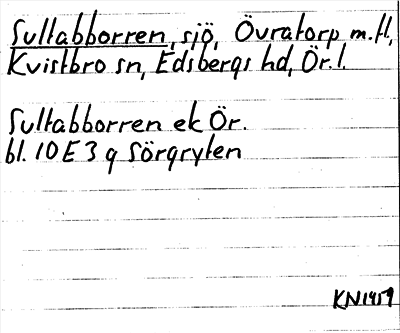 Sultabborren, sjö, Övratorp m.fl,
Kvistbro sn, Edsbergs hd, Ör. l.
Sultabborren ek Ör.
bl. 10E 3 g Sörgryten